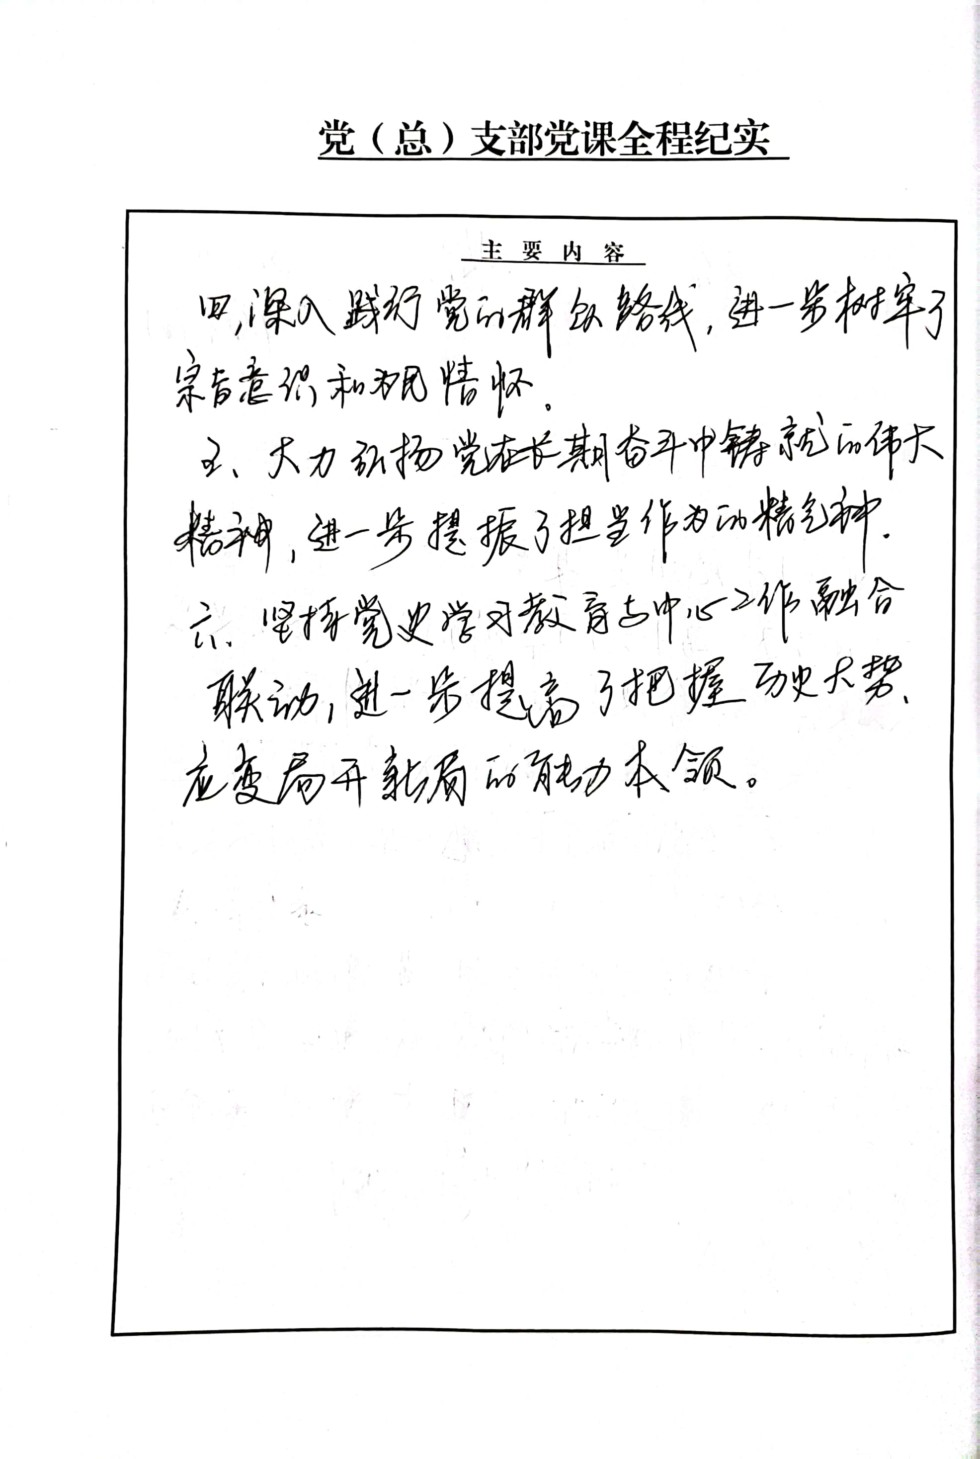 党（总）支部党课全程纪实
主要内容
四,深入践行党的群众路线,进一步树牢了
宗旨意识和为民情怀。
五、大力弘扬党在长期奋斗中铸就的伟大
精神,进一步提振了担当作为的精气神.
六、坚持党史学习教育与中心工作融合
联动,进一步提高了把握历史大势、
应变局开新局的能力本领。